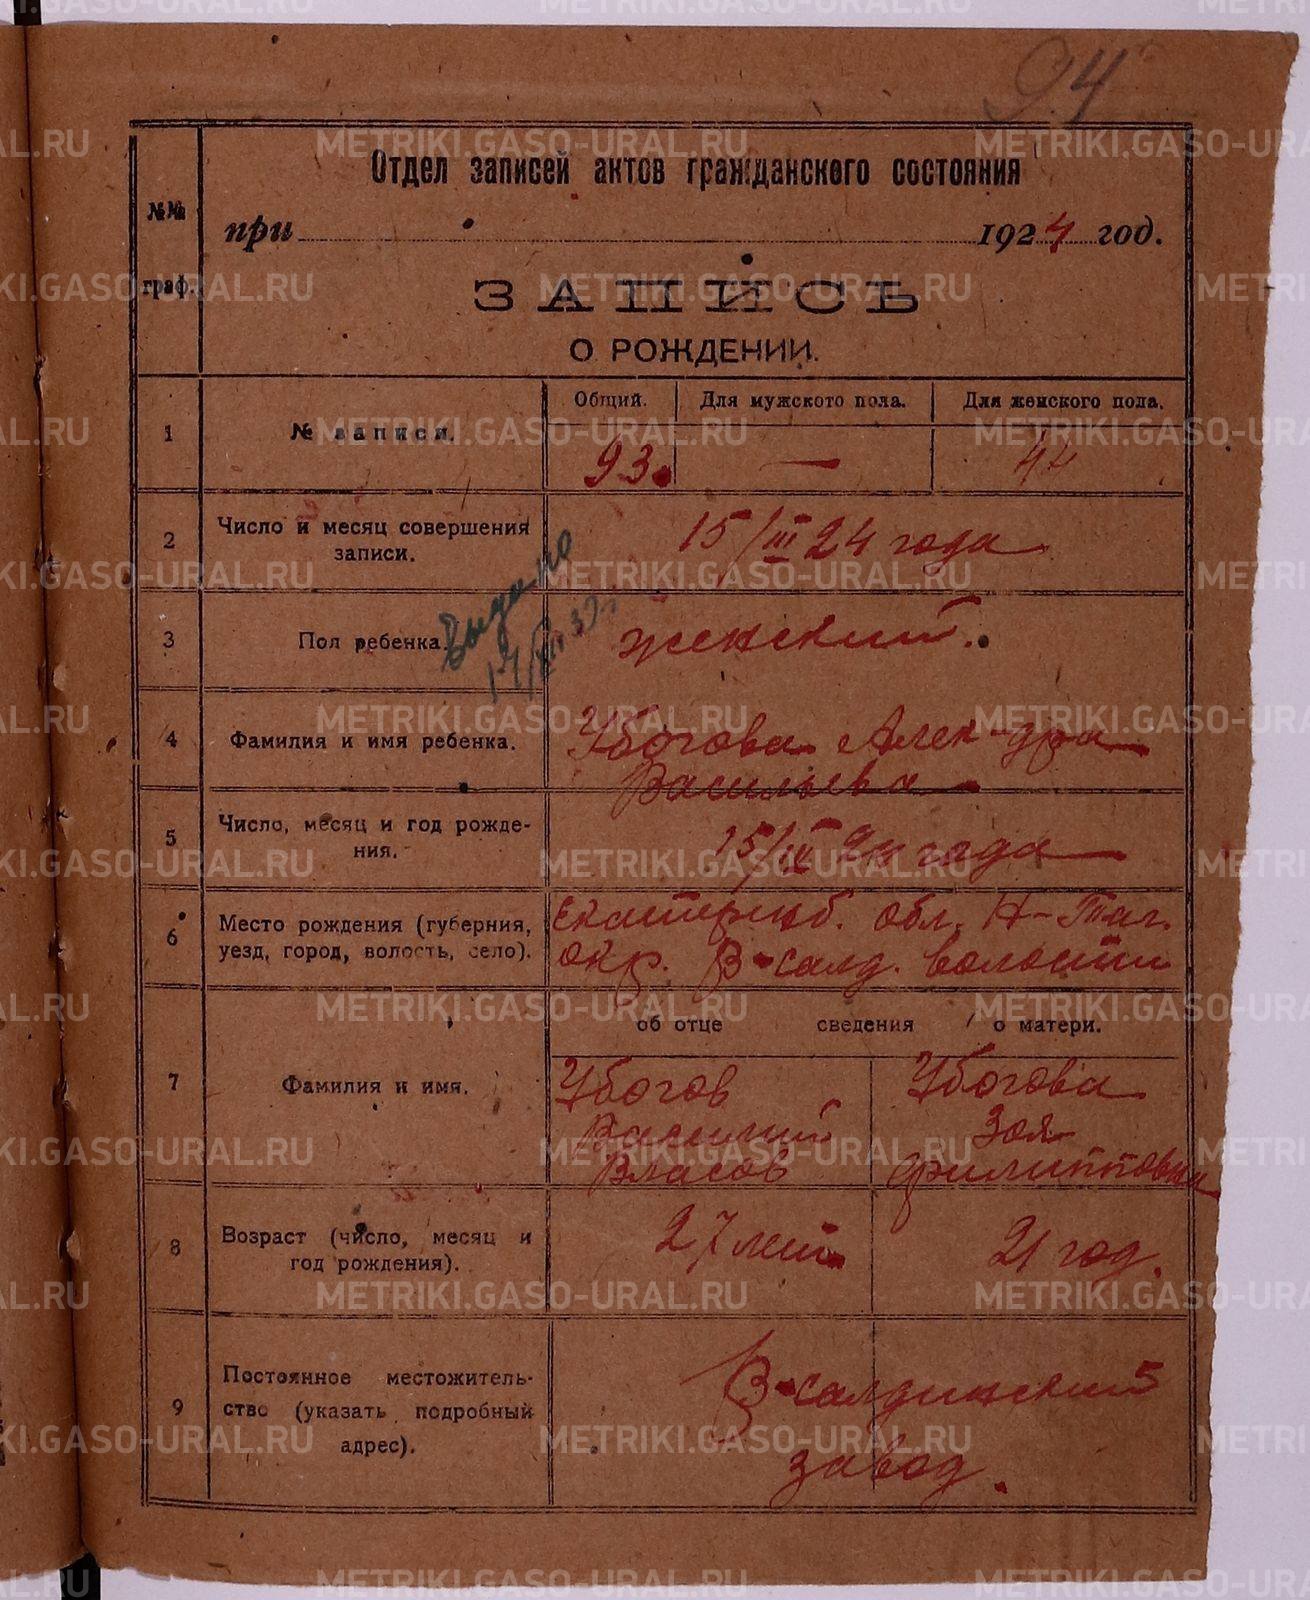 94
Отдел записей актов гражданского состояния
№№ граф.
при 1924 год.
ЗАПИСЬ
О РОЖДЕНИИ.
Общий. Для мужского пола. Для женского пола.
1 № записи. 93. — 44
2 Число и месяц совершения
записи.
15/III 24 года
Выдано
3 Пол ребенка. женский.
4 Фамилия и имя ребенка. Убогова Алек-дра
Васильева
5 Число, месяц и год рожде-
ния.
15/III 24 года
6 Место рождения (губерния,
уезд, город, волость, село).
Екатеринб. обл. Н-Таг.
окр. В-салд. волости
об отце сведения о матери.
7 Фамилия и имя.
Убогов Убогова
Василий Зоя
Власов Филипповна
8 Возраст (число, месяц и
год рождения).
27 лет 21 год.
9 Постоянное местожитель-
ство (указать подробный
адрес).
В-салдинский
завод.
METRIKI.GASO-URAL.RU